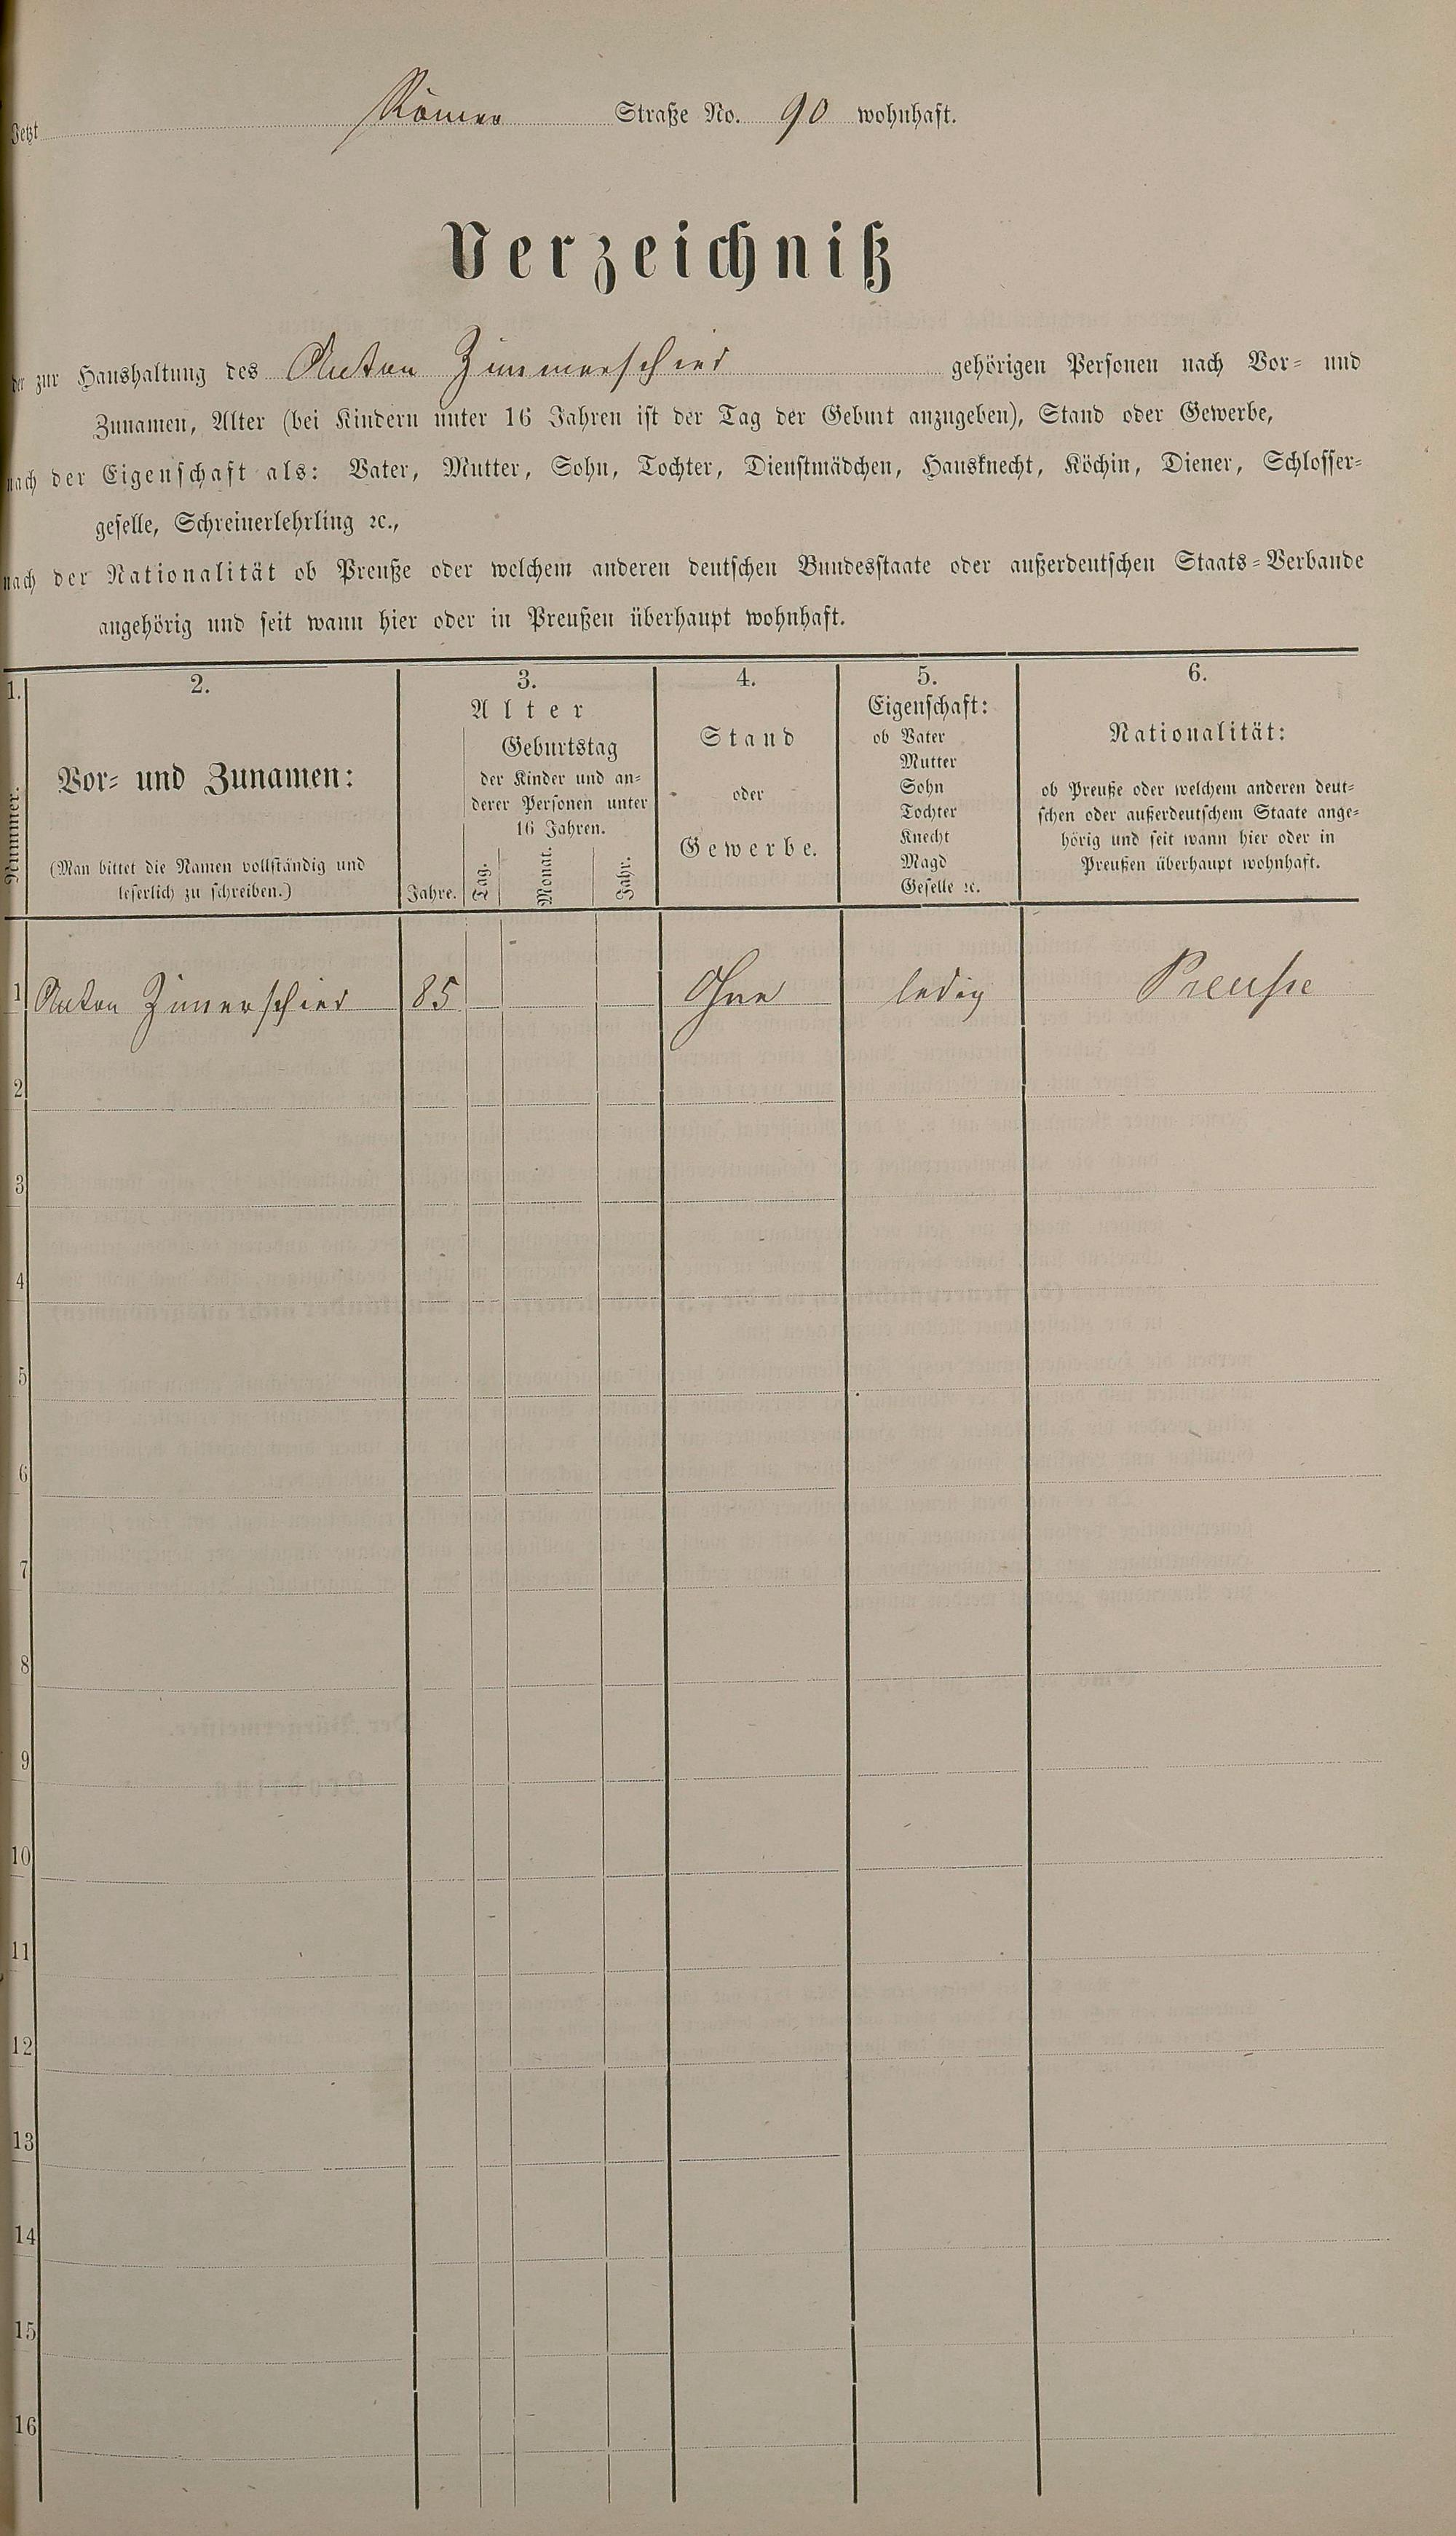 Jetzt Römer Straße No. 90 wohnhaft.
Verzeichniß
der zur Haushaltung des Anton Zimmerschied gehörigen Personen nach Vor- und
Zunamen, Alter (bei Kindern unter 16 Jahren ist der Tag der Geburt anzugeben), Stand oder Gewerbe,
nach der Eigenschaft als: Vater, Mutter, Sohn, Tochter, Dienstmädchen, Hausknecht, Köchin, Diener, Schlosser-
geselle, Schreinerlehrling ꝛc.,
nach der Nationalität ob Preuße oder welchem anderen deutschen Bundesstaate oder außerdeutschen Staats-Verbande
angehörig und seit wann hier oder in Preußen überhaupt wohnhaft.
1.
Nummer.
2.
Vor- und Zunamen:
(Man bittet die Namen vollständig und
leserlich zu schreiben.)
3.
Alter
Jahre.
Geburtstag
der Kinder und an-
derer Personen unter
16 Jahren.
Tag.
Monat.
Jahr.
4.
Stand
oder
Gewerbe.
5.
Eigenschaft:
ob Vater
Mutter
Sohn
Tochter
Knecht
Magd
Geselle ꝛc.
6.
Nationalität:
ob Preuße oder welchem anderen deut-
schen oder außerdeutschem Staate ange-
hörig und seit wann hier oder in
Preußen überhaupt wohnhaft.
1 Anton Zimerschied 85 Ohne ledig Preuße
2
3
4
5
6
7
8
9
10
11
12
13
14
15
16